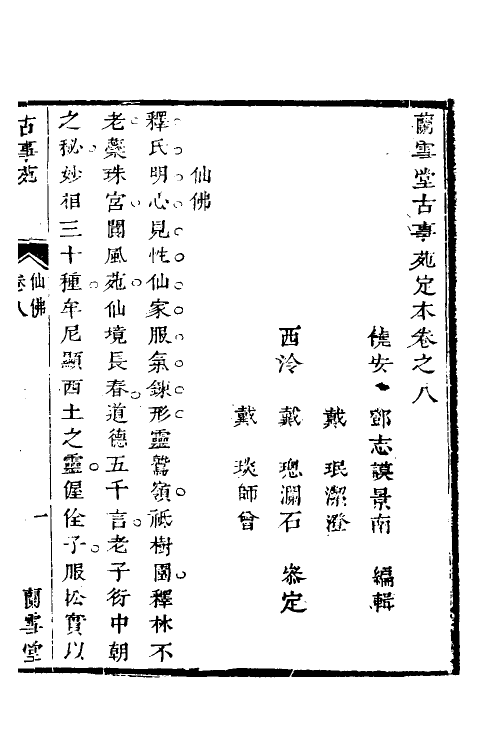 蘭雪堂古事苑定本卷之八
饒安　鄧志謨景南　編輯
戴　珉潔澄
西泠　戴　璁瀾石　叅定
戴　琰師曾
仙佛
釋氏明心見性仙家服氣鍊形靈鷲嶺祇樹園釋林不
老蘂珠宮閬風苑仙境長春道德五千言老子衍中朝
之秘妙相三十種牟尼顯西土之靈偓佺子服松實以
古事苑
卷八
仙佛
一
蘭雪堂